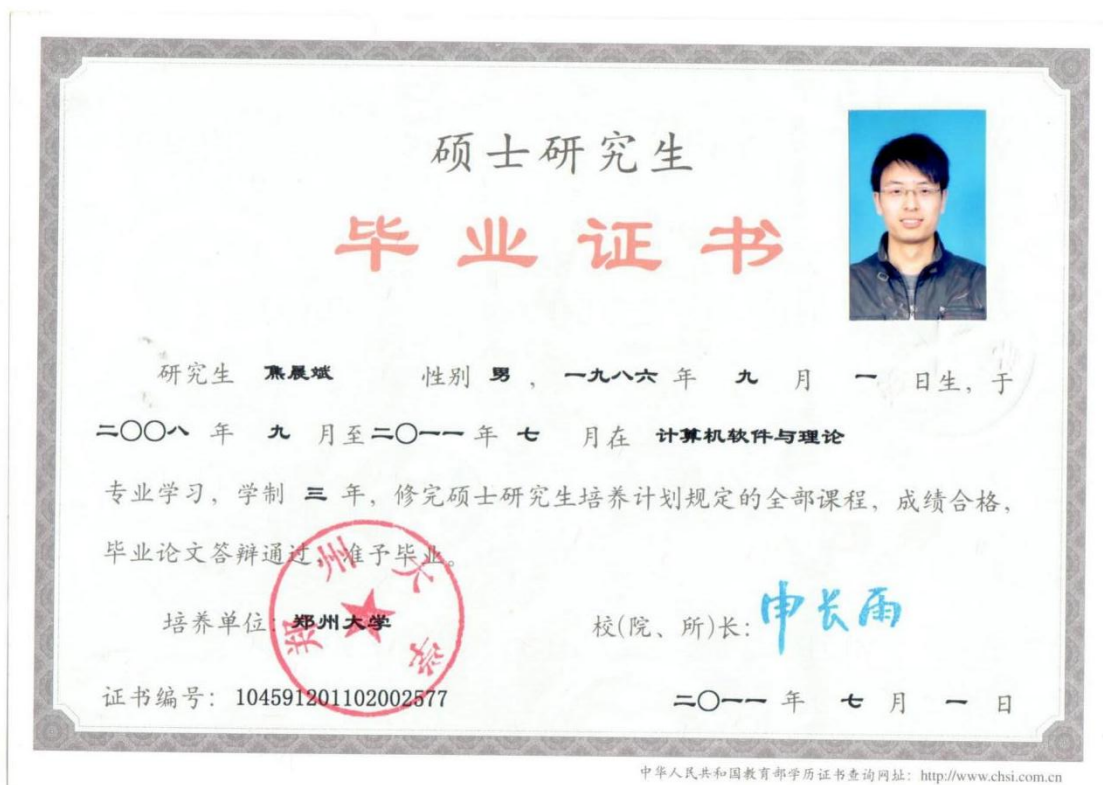 硕士研究生
毕业证书
研究生 焦展斌 性别 男 , 一九八六 年 九 月 一 日生, 于
二〇〇八 年 九 月至 二〇一一 年 七 月在 计算机软件与理论
专业学习, 学制 三 年, 修完硕士研究生培养计划规定的全部课程, 成绩合格,
毕业论文答辩通过, 准予毕业。
郑州大学
培养单位: 郑州大学
校(院、所)长: 申长雨
证书编号: 104591201102002577
二〇一一 年 七 月 一 日
中华人民共和国教育部学历证书查询网址: http://www.chsi.com.cn